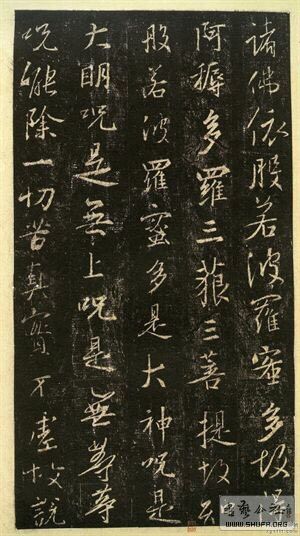 諸佛依般若波羅蜜多故得
阿耨多羅三藐三菩提故知
般若波羅蜜多是大神呪是
大明呪是無上呪是無等等
呪能除一切苦真實不虛故說
WWW.SHUFA.ORG